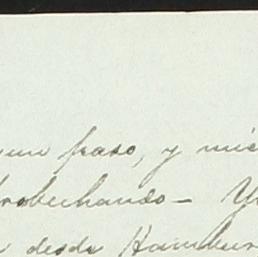 un paso, y mie
trobechando - Y
desde Hambur